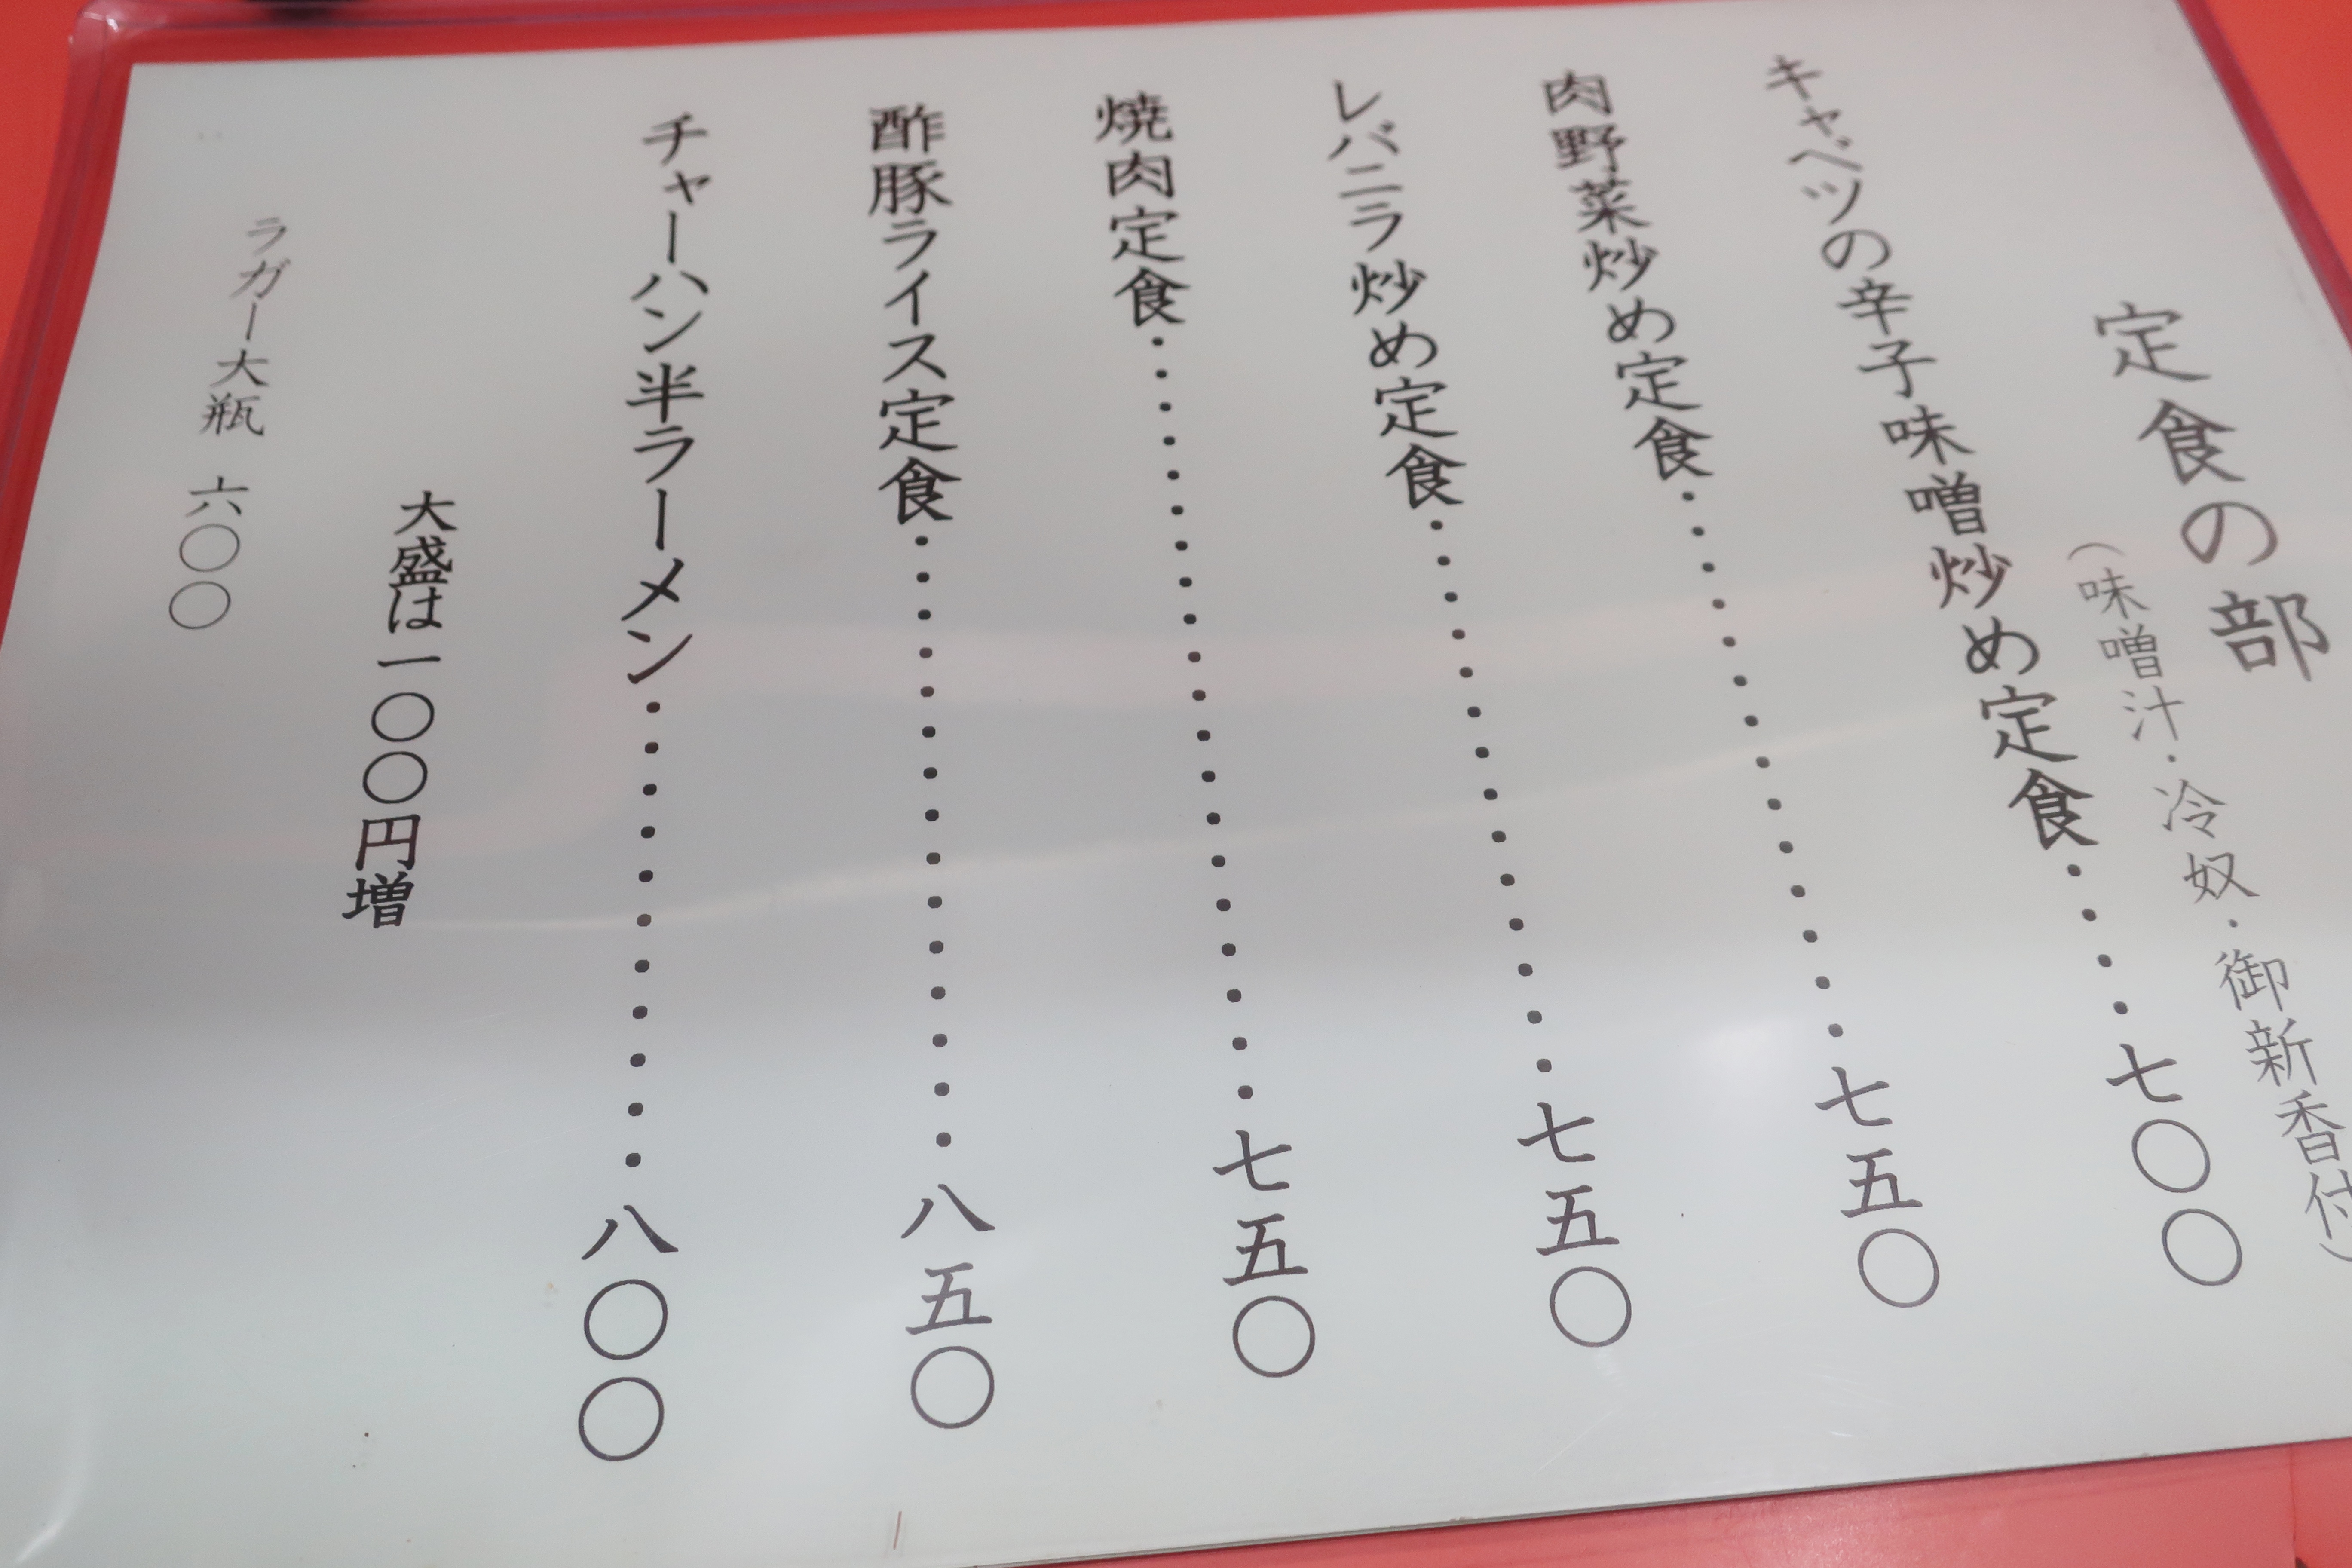 定食の部
（味噌汁・冷奴・御新香付）
キャベツの辛子味噌炒め定食・・・・七〇〇
肉野菜炒め定食・・・・・・・・・・・・・・七五〇
レバニラ炒め定食・・・・・・・・・・・・・・七五〇
焼肉定食・・・・・・・・・・・・・・・・・・・・七五〇
酢豚ライス定食・・・・・・・・・・・・・・・・八五〇
チャーハン半ラーメン・・・・・・・・・・・・八〇〇
大盛は一〇〇円増
ラガー大瓶 六〇〇